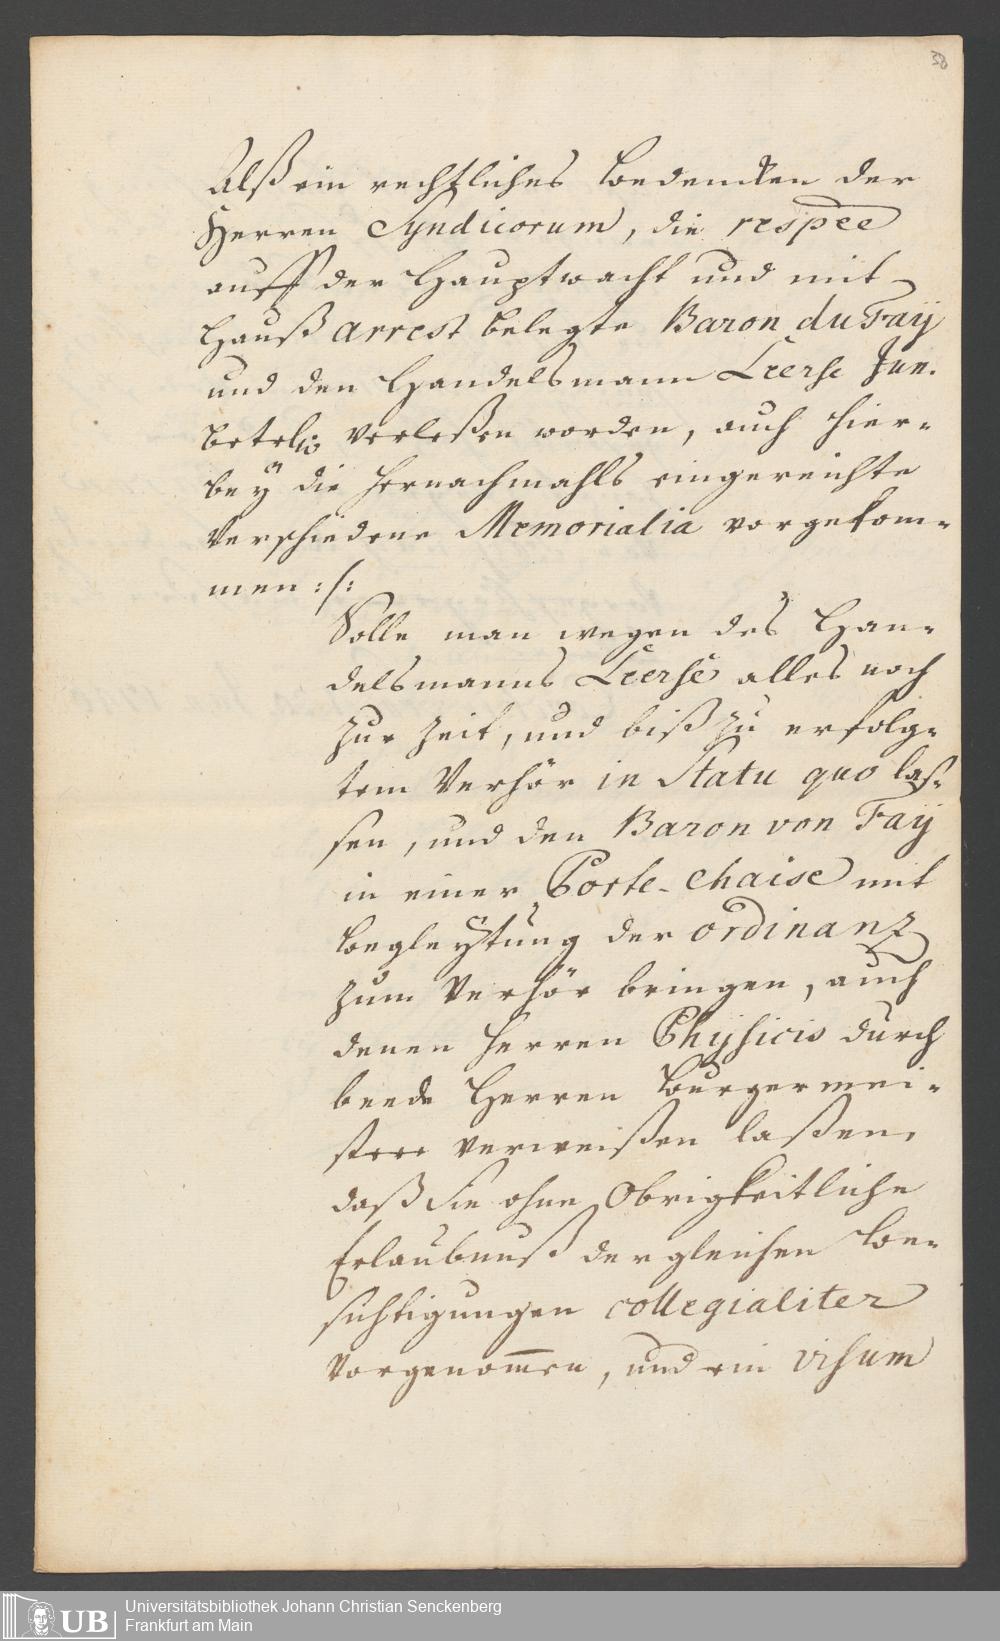 38
Alß ein rechtliches Bedencken der
Herren Syndicorum, die respee
auff der Hauptwacht und mit
Hauß arrest belegte Baron du Faÿ
und den Handelsmann Leerse Jun.
betrl: verleßen worden, auch hier-
beÿ die hernachmahls eingereichte
verschiedene Memorialia vorgekom-
men :/:
Solle man wegen des Han-
delsmanns Leerse alles noch
zur Zeit, und biß zu erfolg-
tem Verhör in Statu quo laß-
sen, und den Baron von Faÿ
in einer Porte-chaise mit
Begleÿtung der ordinanz
zum Verhör bringen, auch
denen Herren Physicis durch
beede Herren Burgermei-
stere verweißen laßen,
daß Sie ohne Obrigkeitliche
Erlaubnuß dergleichen Be-
sichtigungen collegialiter
vorgenom̄en, und ein visum
UB
Universitätsbibliothek Johann Christian Senckenberg
Frankfurt am Main